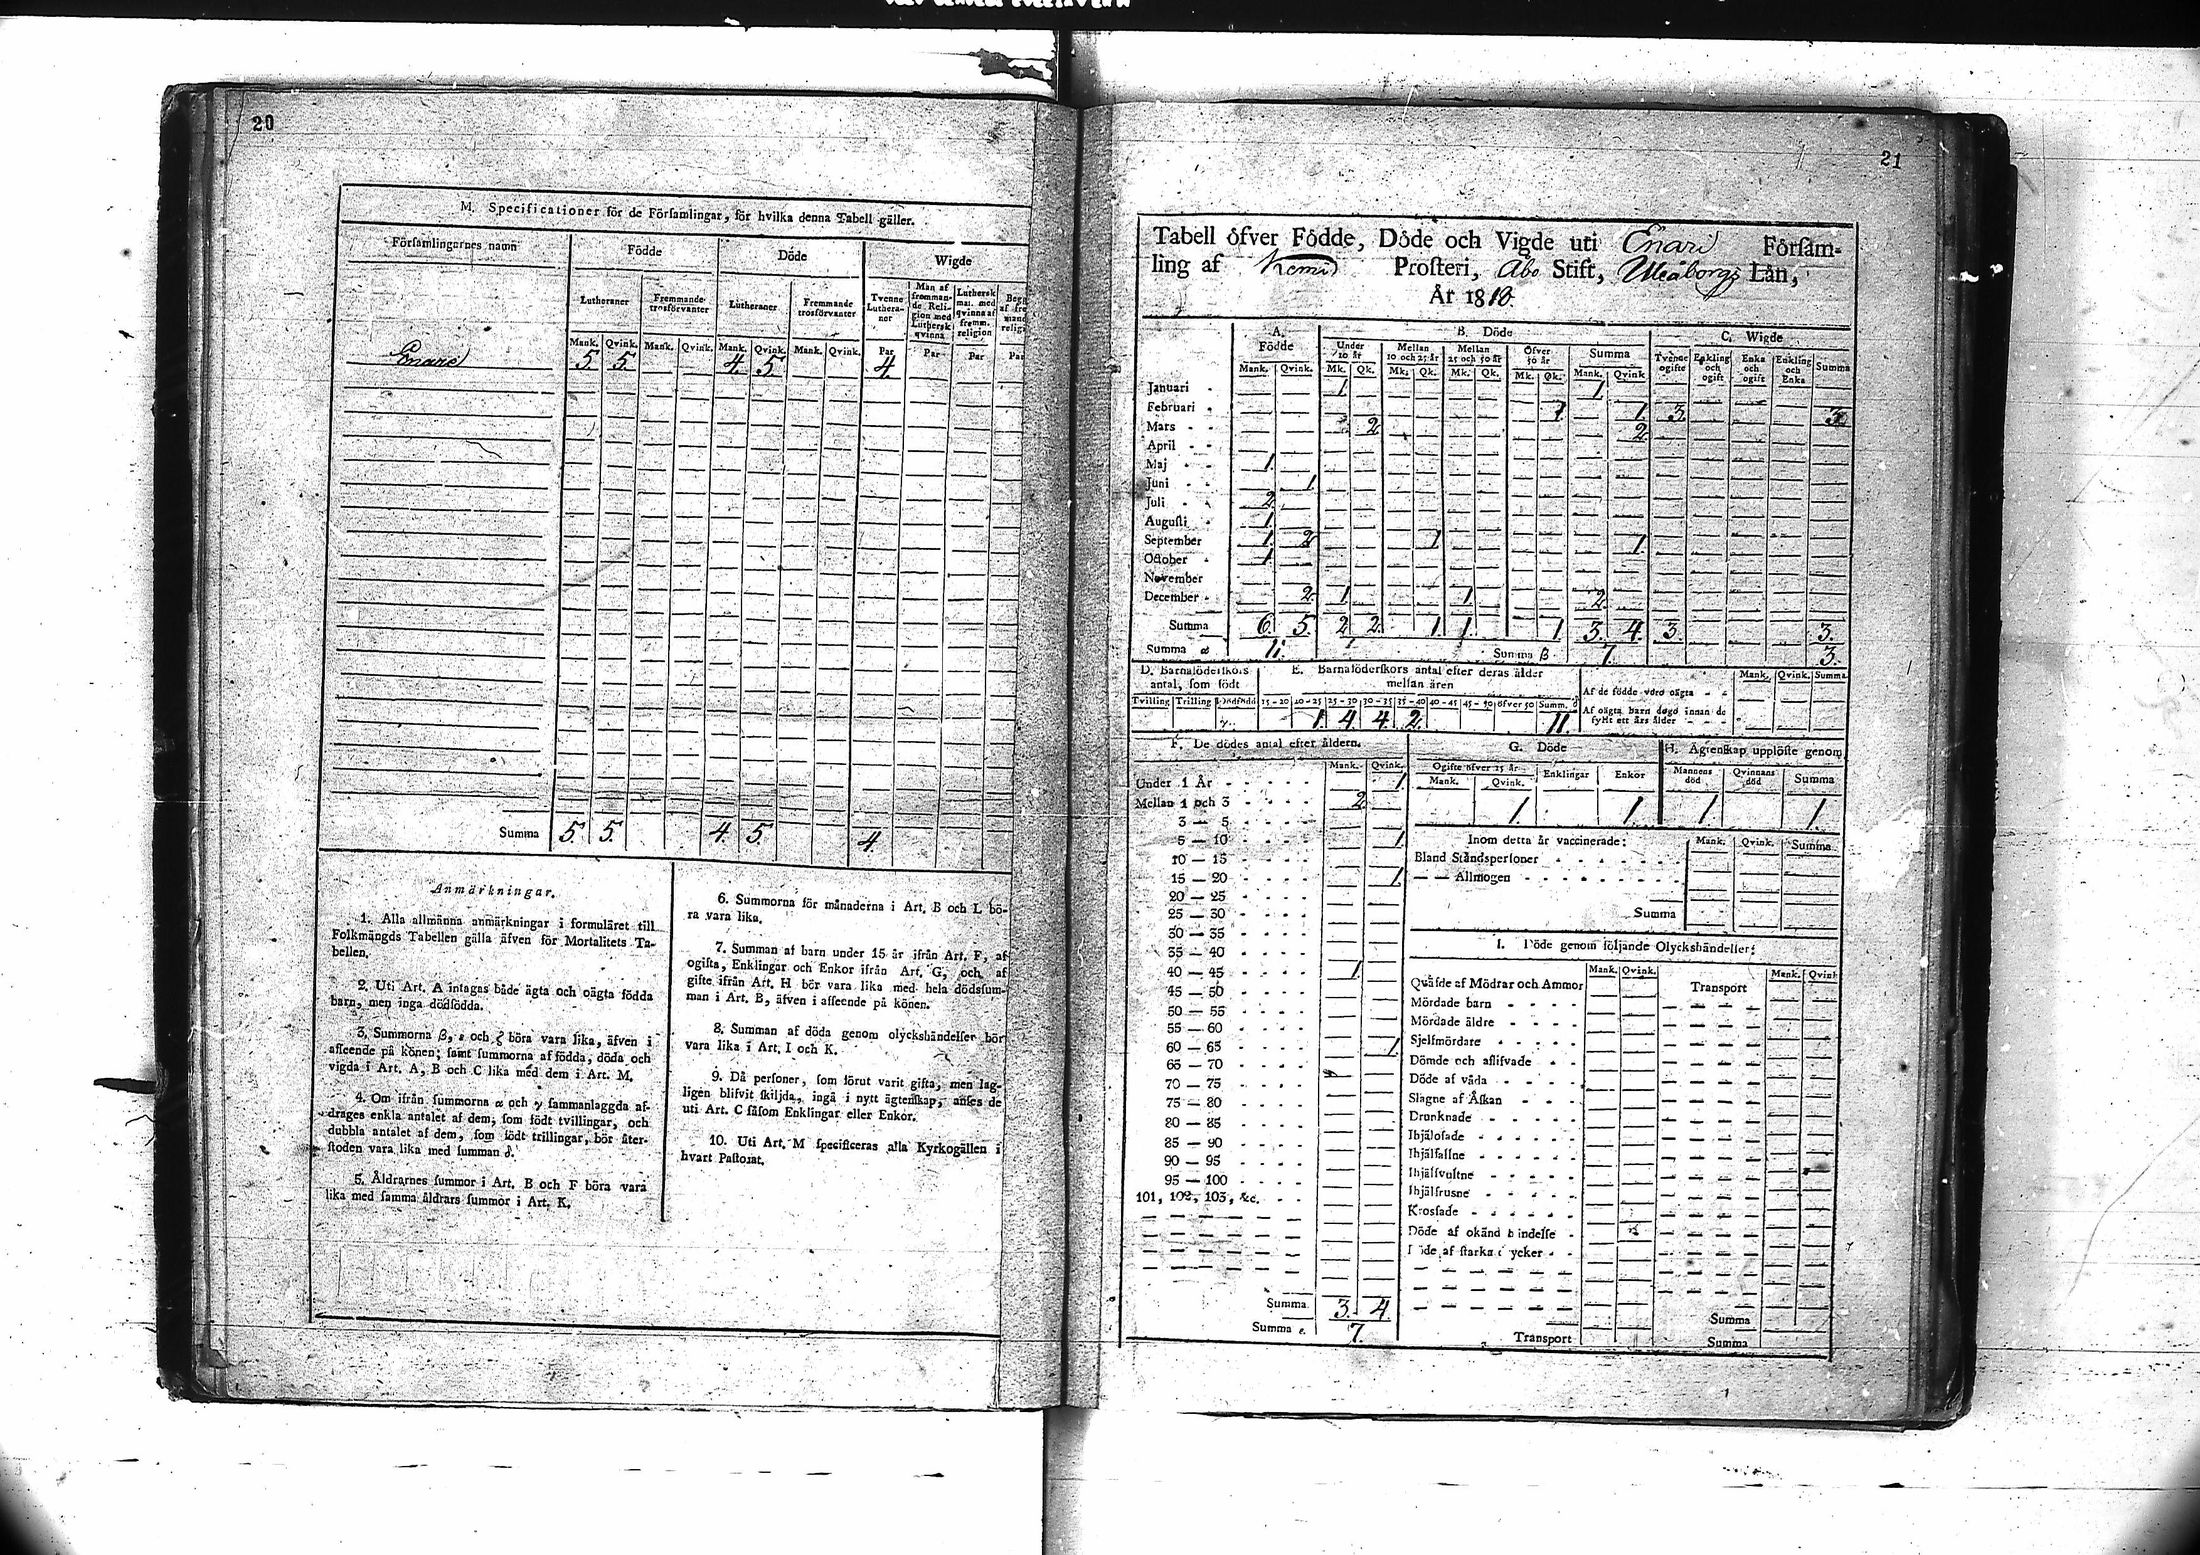 20
M. Specificationer för de Försam­lingar, för hvilka denna Tabell gäller.
Församlingarnes namn
Födde
Döde
Wigde
Lutheraner
Fremmande trosförvanter
Lutheraner
Fremmande trosförvanter
Tvenne Lutheraner
Man af fremmande Religion med Luthersk qvinna
Luthersk man med qvinna af fremm. religion
Mank. Qvink. Mank. Qvink. Mank. Qvink. Mank. Qvink. Par Par Par Par
Enare 5. 5. 4. 5. 4.
Summa 5. 5. 4. 5. 4.
Anmärkningar.
1. Alla allmänna anmärkningar i formuläret till
Folkmängds Tabellen gälla äfven för Mortalitets Ta-
bellen.
2. Uti Art. A intagas både ägta och oägta födda
barn, men inga dödfödda.
3. Summorna β, ε och ζ böra vara lika, äfven i
afseende på könen; samt summorna af födda, döda och
vigda i Art. A, B och C lika med dem i Art. M.
4. Om ifrån summorna α och γ sammanlaggda af-
drages enkla antalet af dem, som födt tvillingar, och
dubbla antalet af dem, som födt trillingar, bör åter-
stoden vara lika med summan δ.
5. Åldrarnes summor i Art. B och F böra vara
lika med samma åldrars summor i Art. K.
6. Summorna för månaderna i Art. B och L bö-
ra vara lika.
7. Summan af barn under 15 år ifrån Art. F, af
ogifta, Enklingar och Enkor ifrån Art. G, och af
gifte ifrån Art. H bör vara lika med hela dödssum-
man i Art. B, äfven i afseende på könen.
8. Summan af döda genom olyckshändelser bör
vara lika i Art. I och K.
9. Då personer, som förut varit gifta, men lag-
ligen blifvit skiljda, ingå i nytt ägtenskap, anses de
uti Art. C såsom Enklingar eller Enkor.
10. Uti Art. M specificeras alla Kyrkogällen i
hvart Pastorat.
21
Tabell öfver Födde, Döde och Vigde uti Enari Församling
ling af Kemi Prosteri, Åbo Stift, Uleåborgs Län,
År 1818.
A. Födde
B. Döde
C. Wigde
Under 10 år
Mellan 10 och 25 år
Mellan 25 och 50 år
Öfver 50 år
Summa
Tvenne ogifte
Enkling och ogift
Enka och ogift
Enkling och Enka
Summa
Mank. Qvink. Mk. Qk. Mk. Qk. Mk. Qk. Mk. Qk. Mank. Qvink
Januari 1. 1.
Februari 1 1. 3. 3.
Mars 2. 2.
April
Maj 1.
Juni 1.
Juli 2.
Augusti 1.
September 1. 2. 1. 1.
October 1.
November
December 2. 1. 1. 2.
Summa 6. 5. 2. 2. 1. 1. 1. 3. 4. 3. 3.
Summa α 11. Summa β 7. 3.
D. Barnaföderskors antal, som födt
E. Barnaföderskors antal efter deras ålder mellan åren
Tvilling Trilling Dödfödd 15-20 20-25 25-30 30-35 35-40 40-45 45-50 öfver 50 Summ. δ
γ. 1. 4. 4. 2. 11.
Mank. Qvink. Summa
Af de födde voro oägta
Af oägta barn dogo innan de
fyllt ett års ålder
F. De dödes antal efter åldern.
Mank. Qvink.
Under 1 År 1.
Mellan 1 och 3 2.
3 — 5
5 — 10 1.
10 — 15
15 — 20 1.
20 — 25
25 — 30
30 — 35
35 — 40
40 — 45 1.
45 — 50
50 — 55
55 — 60
60 — 65 1.
65 — 70
70 — 75
75 — 80
80 — 85
85 — 90
90 — 95
95 — 100
101, 102, 103, &c.
Summa 3. 4.
Summa ε. 7.
G. Döde
Ogifte öfver 15 år
Enklingar
Enkor
Mank. Qvink.
1. 1.
H. Ägtenskap upplöste genom
Mannens död
Qvinnans död
Summa
1. 1.
Inom detta år vaccinerade: Mank. Qvink. Summa
Bland Ståndspersoner
— — Allmogen
Summa
I. Döde genom följande Olyckshändelser:
Mank. Qvink. Mank. Qvink
Qväfde af Mödrar och Ammor Transport
Mördade barn
Mördade äldre
Sjelfmördare
Dömde och aflifvade
Döde af våda
Slagne af Åskan
Drunknade
Ihjälofade
Ihjälfallne
Ihjälsvultne
Ihjälfrusne
Krossade
Döde af okänd händelse
Döde af starka drycker
Summa
Transport Summa